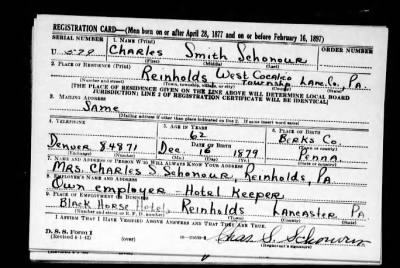 REGISTRATION CARD—(Men born on or after April 28, 1877 and on or before February 16, 1897)
SERIAL NUMBER 1. NAME (Print) ORDER NUMBER
U Charles Smith Schonour
(First) (Middle) (Last)
2. PLACE OF RESIDENCE (Print)
Reinholds West Cocalico Township Lanc. Co., PA.
(Number and street) (Town, township, village, or city) (County) (State)
[THE PLACE OF RESIDENCE GIVEN ON THE LINE ABOVE WILL DETERMINE LOCAL BOARD
JURISDICTION; LINE 2 OF REGISTRATION CERTIFICATE WILL BE IDENTICAL]
3. MAILING ADDRESS
Same
[Mailing address if other than place indicated on line 2. If same insert word same]
4. TELEPHONE 5. AGE IN YEARS 6. PLACE OF BIRTH
62 Berks Co.
DATE OF BIRTH (Town or county)
Denver 84871 Dec 16 1879 Penna.
(Exchange) (Number) (Mo.) (Day) (Yr.) (State or country)
7. NAME AND ADDRESS OF PERSON WHO WILL ALWAYS KNOW YOUR ADDRESS
Mrs. Charles S Schonour, Reinholds, PA.
8. EMPLOYER'S NAME AND ADDRESS
Own employer - Hotel Keeper
9. PLACE OF EMPLOYMENT OR BUSINESS
Black Horse Hotel, Reinholds Lancaster PA
(Number and street or R. F. D. number) (Town) (County) (State)
I AFFIRM THAT I HAVE VERIFIED ABOVE ANSWERS AND THAT THEY ARE TRUE.
D. S. S. Form 1
(Revised 4-1-42) (over) Chas S. Schonour